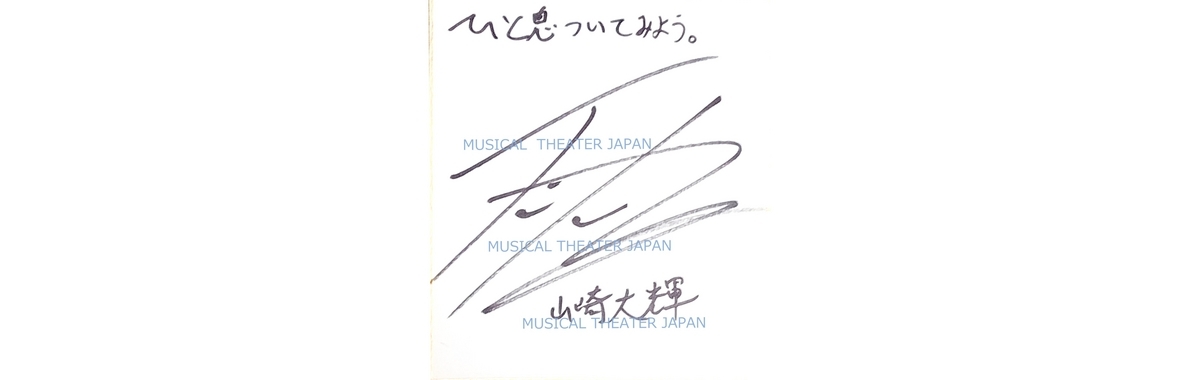 ひと息ついてみよう。
MUSICAL THEATER JAPAN
MUSICAL THEATER JAPAN
山崎大輝
MUSICAL THEATER JAPAN